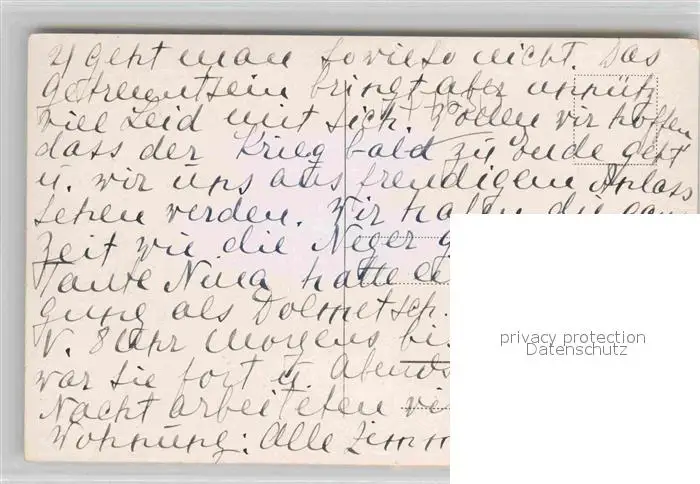 2) geht man sowieso nicht. Das
Getrenntsein bringt aber unnütz
viel Leid mit sich. Wollen wir hoffen
dass der Krieg bald zu ende geht
u. wir uns aus freudigem Anlass
sehen werden. Wir haben die ganze
Zeit wie die Neger g
Tante Nina hatte
gung als Dolmetsch.
V. 8 Uhr morgens bis
war sie fort u. Abends
Nacht arbeiteten wi
Wohnung: Alle Zimm
privacy protection
Datenschutz